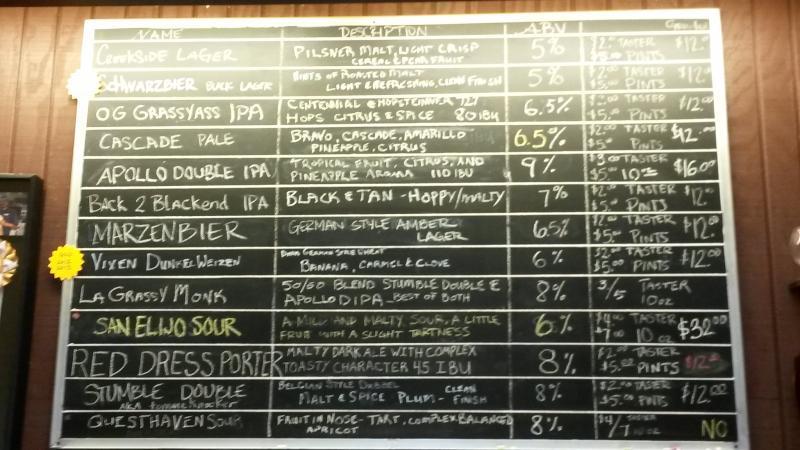 NAME DESCRIPTION ABV
CREEKSIDE LAGER PILSNER MALT, LIGHT CRISP 5% $2. TASTER $12.
CEREAL & PEAR FRUIT $5.00 PINTS
SCHWARZBIER BLACK LAGER HINTS OF ROASTED MALT 5% $2.00 TASTER $12
LIGHT & REFRESHING, CLEAN FINISH $5.00 PINTS
OG GRASSYASS IPA CENTENNIAL & HOPSTEINNER 727 6.5% TASTER $12.00
HOPS CITRUS & SPICE 80 IBU $5. PINTS
CASCADE PALE BRAVO, CASCADE, AMARILLO 6.5% $2.00 TASTER $12.00
PINEAPPLE, CITRUS $5. PINTS
APOLLO DOUBLE IPA TROPICAL FRUIT, CITRUS, AND 9% $3.00 TASTER $16.00
PINEAPPLE AROMA 110 IBU $5. 10oz
BACK 2 BLACKEND IPA BLACK & TAN - HOPPY/MALTY 7% $2.00 TASTER $12.
$5.00 PINTS
MARZENBIER GERMAN STYLE AMBER 6.5% $2.00 TASTER $12.00
LAGER $5. PINTS
VIXEN DUNKELWEIZEN DARK GERMAN STYLE WHEAT 6% $2.00 TASTER $12.00
BANANA, CARMEL & CLOVE $5.00 PINTS
LA GRASSY MONK 50/50 BLEND STUMBLE DOUBLE & 8% 3/5 TASTER
APOLLO DIPA - BEST OF BOTH 10oz
SAN ELIJO SOUR A MILD AND MALTY SOUR, A LITTLE 6% $4.00 TASTER $32.00
FRUIT WITH A SLIGHT TARTNESS $7.00 10 oz
RED DRESS PORTER MALTY DARK ALE WITH COMPLEX 8% $2.00 TASTER $12.00
TOASTY CHARACTER 45 IBU $5.00 PINTS
STUMBLE DOUBLE BELGIAN STYLE DUBBEL CLEAN 8% $2.00 TASTER $12.00
AKA MALT & SPICE PLUM - FINISH $5.00 PINTS
QUESTHAVEN SOUR FRUIT IN NOSE - TART, COMPLEX BALANCED 8% $4/ NO
APRICOT 7